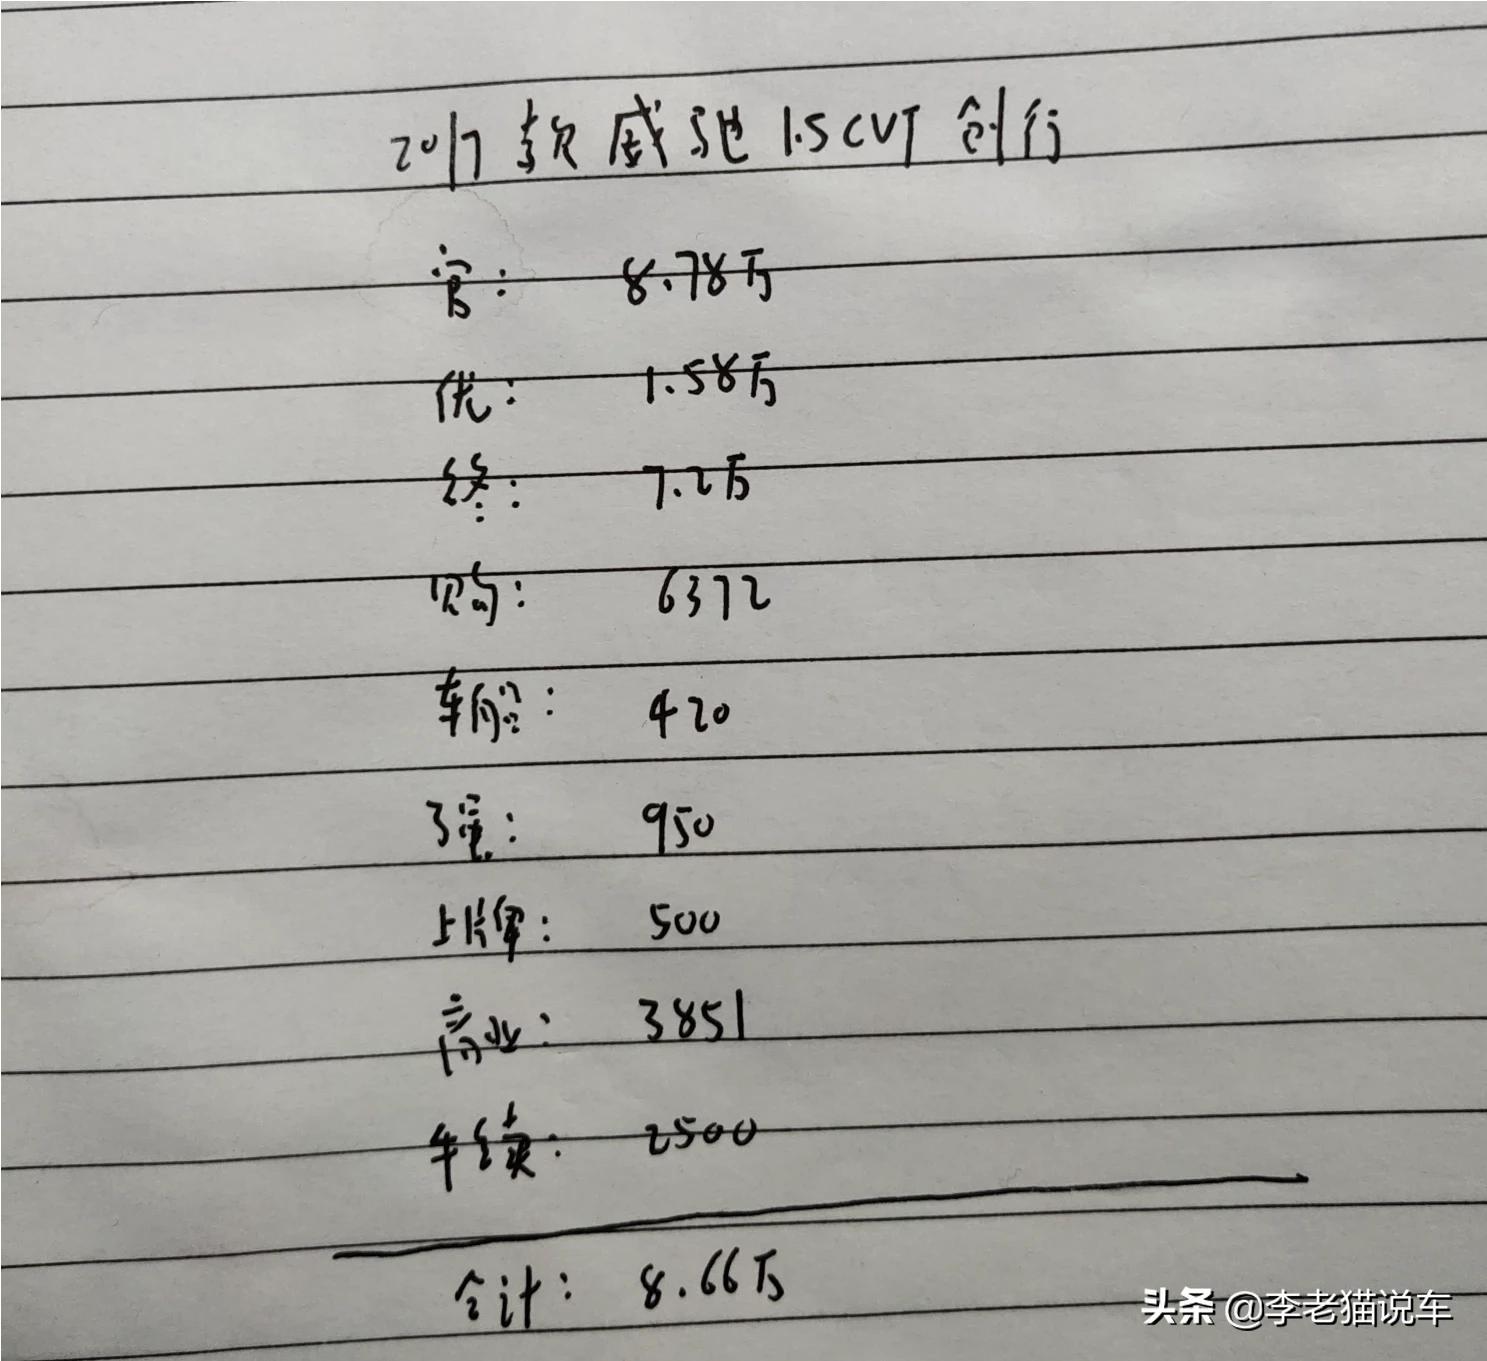 2017款威驰1.5CVT创行
官: 8.78万
优: 1.58万
终: 7.2万
购: 6372
车船: 420
强: 950
上牌: 500
商业: 3851
手续: 2500
合计: 8.66万
头条 @李老猫说车